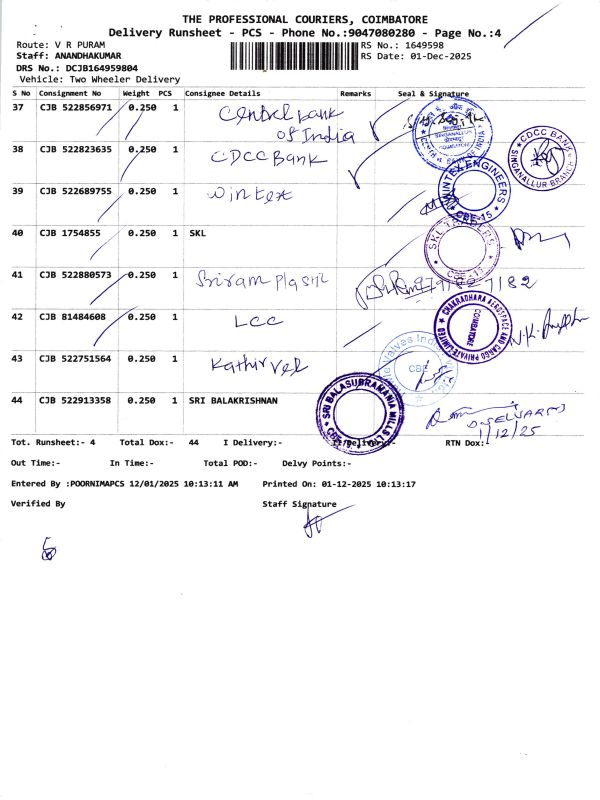 THE PROFESSIONAL COURIERS, COIMBATORE
Delivery Runsheet - PCS - Phone No.:9047080280 - Page No.:4
Route: V R PURAM
RS No.: 1649598
Staff: ANANDHAKUMAR
RS Date: 01-Dec-2025
DRS No.: DCJB164959804
Vehicle: Two Wheeler Delivery
S No Consignment No Weight PCS Consignee Details Remarks Seal & Signature
37 CJB 522856971 0.250 1 Central bank
of India
38 CJB 522823635 0.250 1 CDCC Bank
CDCC BANK
SINGANALLUR BRANCH
39 CJB 522689755 0.250 1 Wintex
WINTEX ENGINEERS
CBE-15
40 CJB 1754855 0.250 1 SKL
SKL
41 CJB 522880573 0.250 1 Sriram Plastic
42 CJB 81484608 0.250 1 LCC
CHAKRADHARA AEROSPACE AND CARGO PRIVATE LIMITED
COIMBATORE
43 CJB 522751564 0.250 1 Kathirvel
Valves
CBE
44 CJB 522913358 0.250 1 SRI BALAKRISHNAN
SRI BALASUBRAMANIA MILLS
D.SELVARAJ
1/12/25
Tot. Runsheet:- 4 Total Dox:- 44 I Delivery:- RTN Dox:-
Out Time:- In Time:- Total POD:- Delvy Points:-
Entered By :POORNIMAPCS 12/01/2025 10:13:11 AM Printed On: 01-12-2025 10:13:17
Verified By Staff Signature